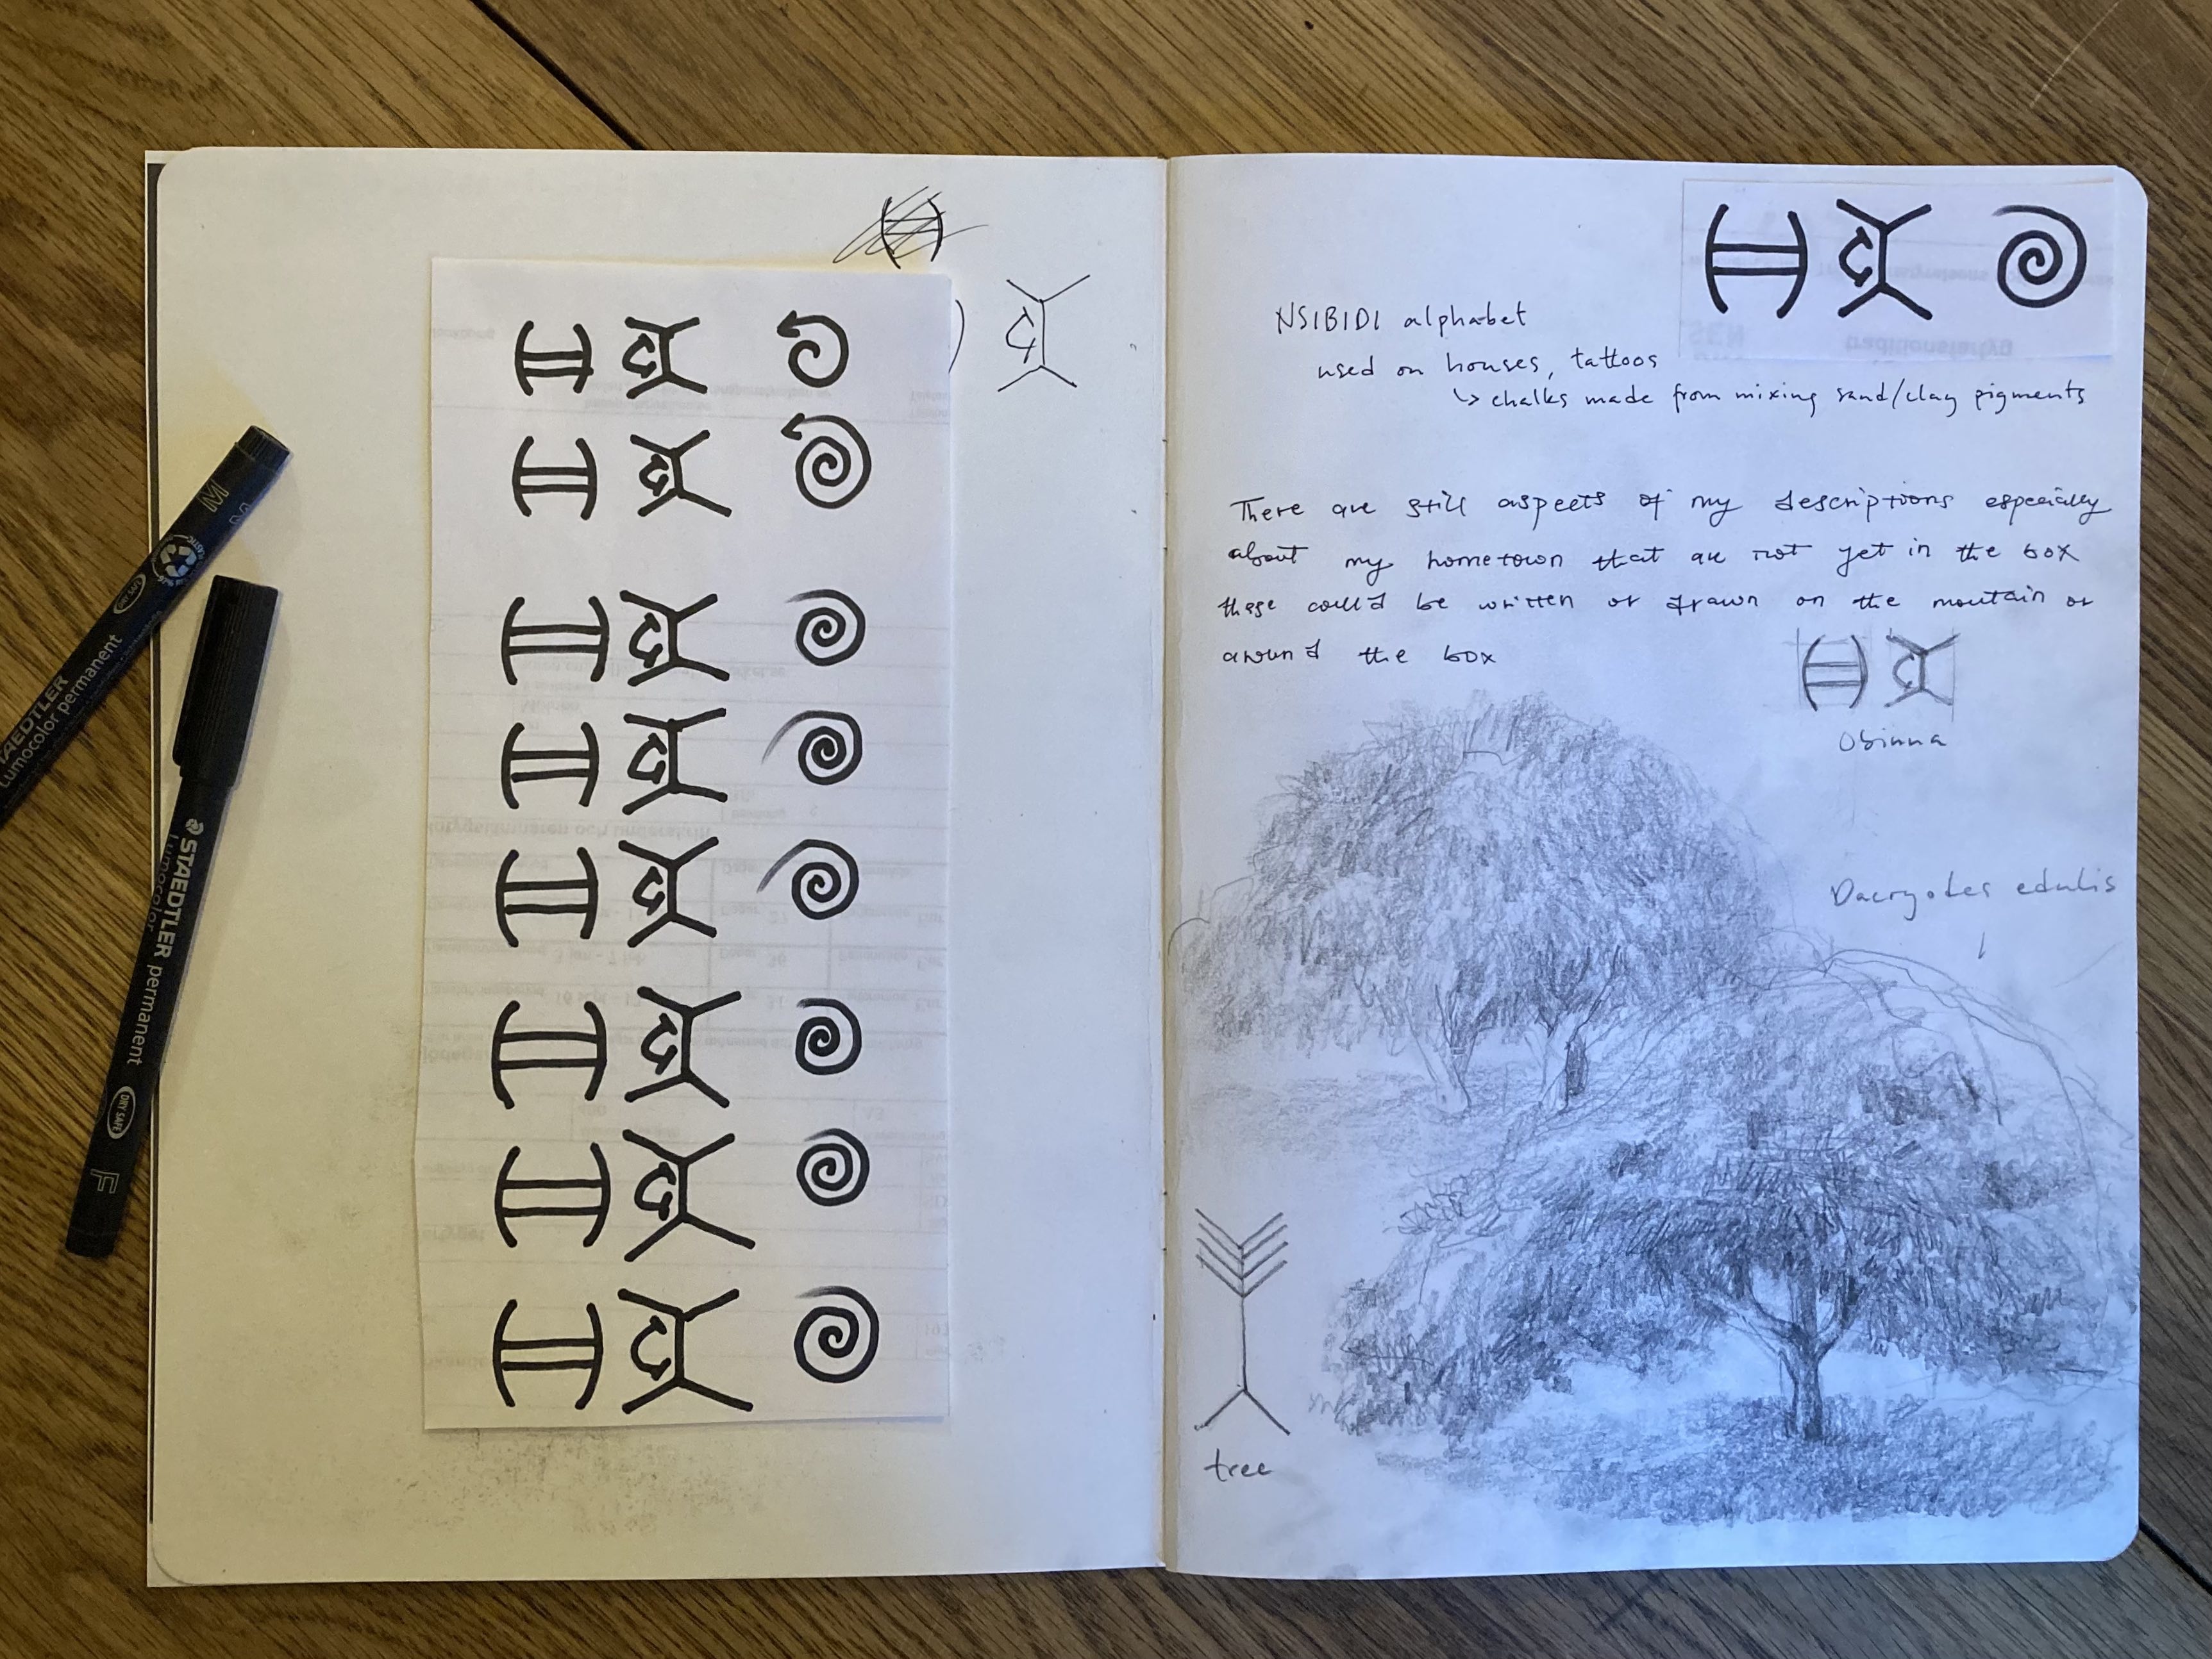 NSIBIDI alphabet
used on houses, tattoos
↳ chalks made from mixing sand/clay pigments
There are still aspects of my descriptions especially
about my hometown that are not yet in the box
these could be written or drawn on the moutain or
around the box
Obinna
Dacryodes edulis
tree
STAEDTLER
Lumocolor permanent
M
STAEDTLER permanent
Lumocolor
DRY SAFE
F